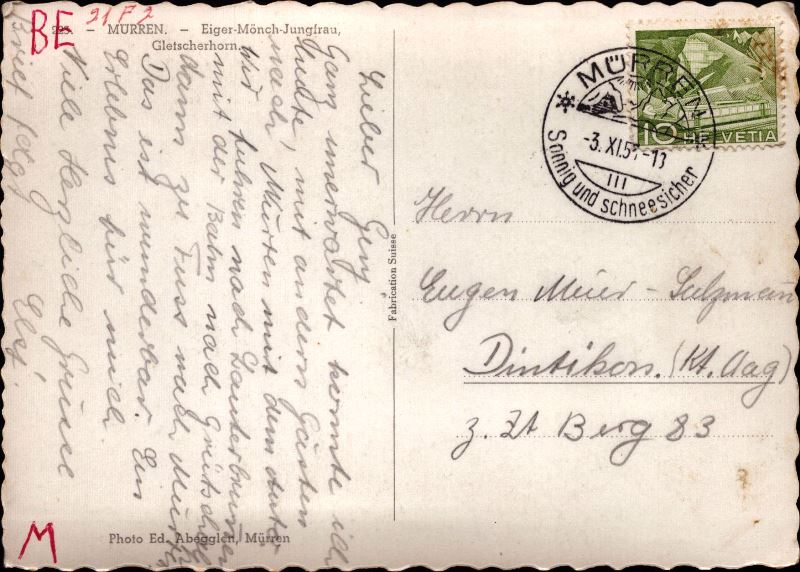 BE 2172
223. - MÜRREN. - Eiger-Mönch-Jungfrau,
Gletscherhorn.
Lieber Genj
Ganz unerwartet konnte ich
heute, mit andern Gästen
nach Mürren mit dem Auto
wir fuhren nach Lauterbrunnen
mit der Bahn nach Grütschalp
dann zu Fuss nach Mürren
Das ist wunderbar. Ein
Erlebnis für mich.
Viele Herzliche Grüsse
Brief folgt Elsj.
M
Photo Ed. Abegglen, Mürren
Fabrication Suisse
MÜRREN
-3. XI. 5 -13
III
Sonnig und schneesicher
10 HELVETIA
Herrn
Eugen Meier-Salzmann
Dintikon. (Kt. Aag)
z. Zt Berg 83